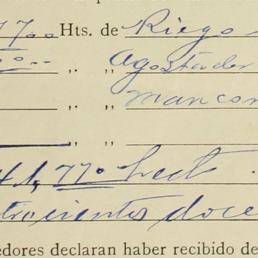 77.00 Hts. de Riego
,, ,, Agostader
,, ,, mancom
,, ,,
41,770 hects.
trocientos doce
edores declaran haber recibido de